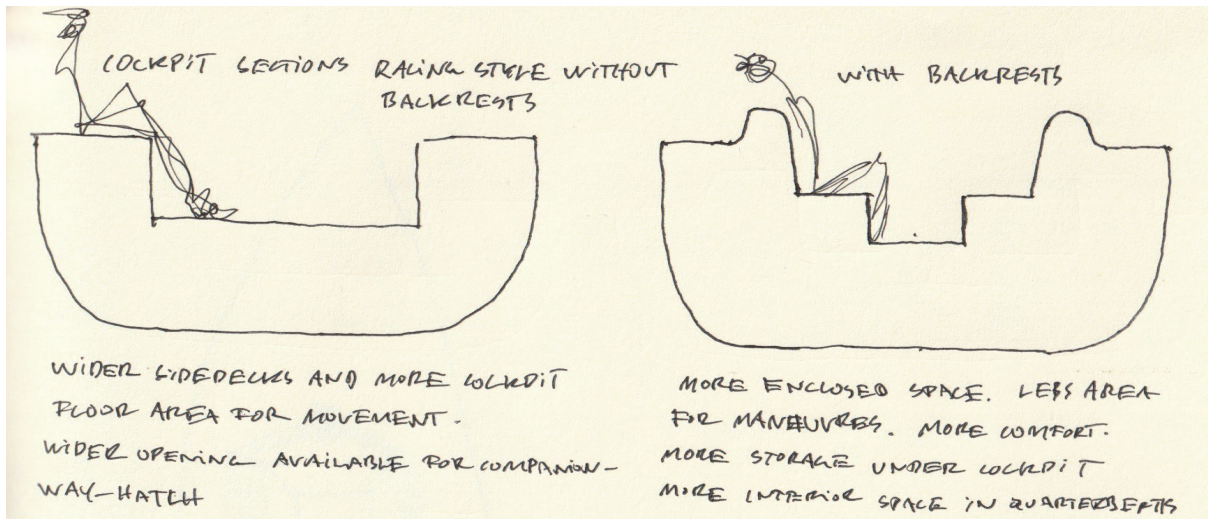 COCKPIT SECTIONS RACING STYLE WITHOUT
BACKRESTS
WIDER SIDEDECKS AND MORE COCKPIT
FLOOR AREA FOR MOVEMENT.
WIDER OPENING AVAILABLE FOR COMPANION-
WAY-HATCH
WITH BACKRESTS
MORE ENCLOSED SPACE. LESS AREA
FOR MANEUVRES. MORE COMFORT.
MORE STORAGE UNDER COCKPIT
MORE INTERIOR SPACE IN QUARTERBERTHS